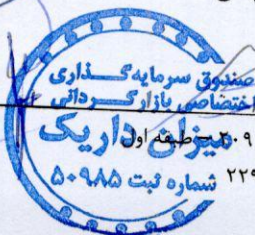 صندوق سرمایه‌گذاری
اختصاصی بازارگردانی
میزان داریک
۳۰۹ - طبقه اول
۲۲۹
شماره ثبت ۵۰۹۸۵